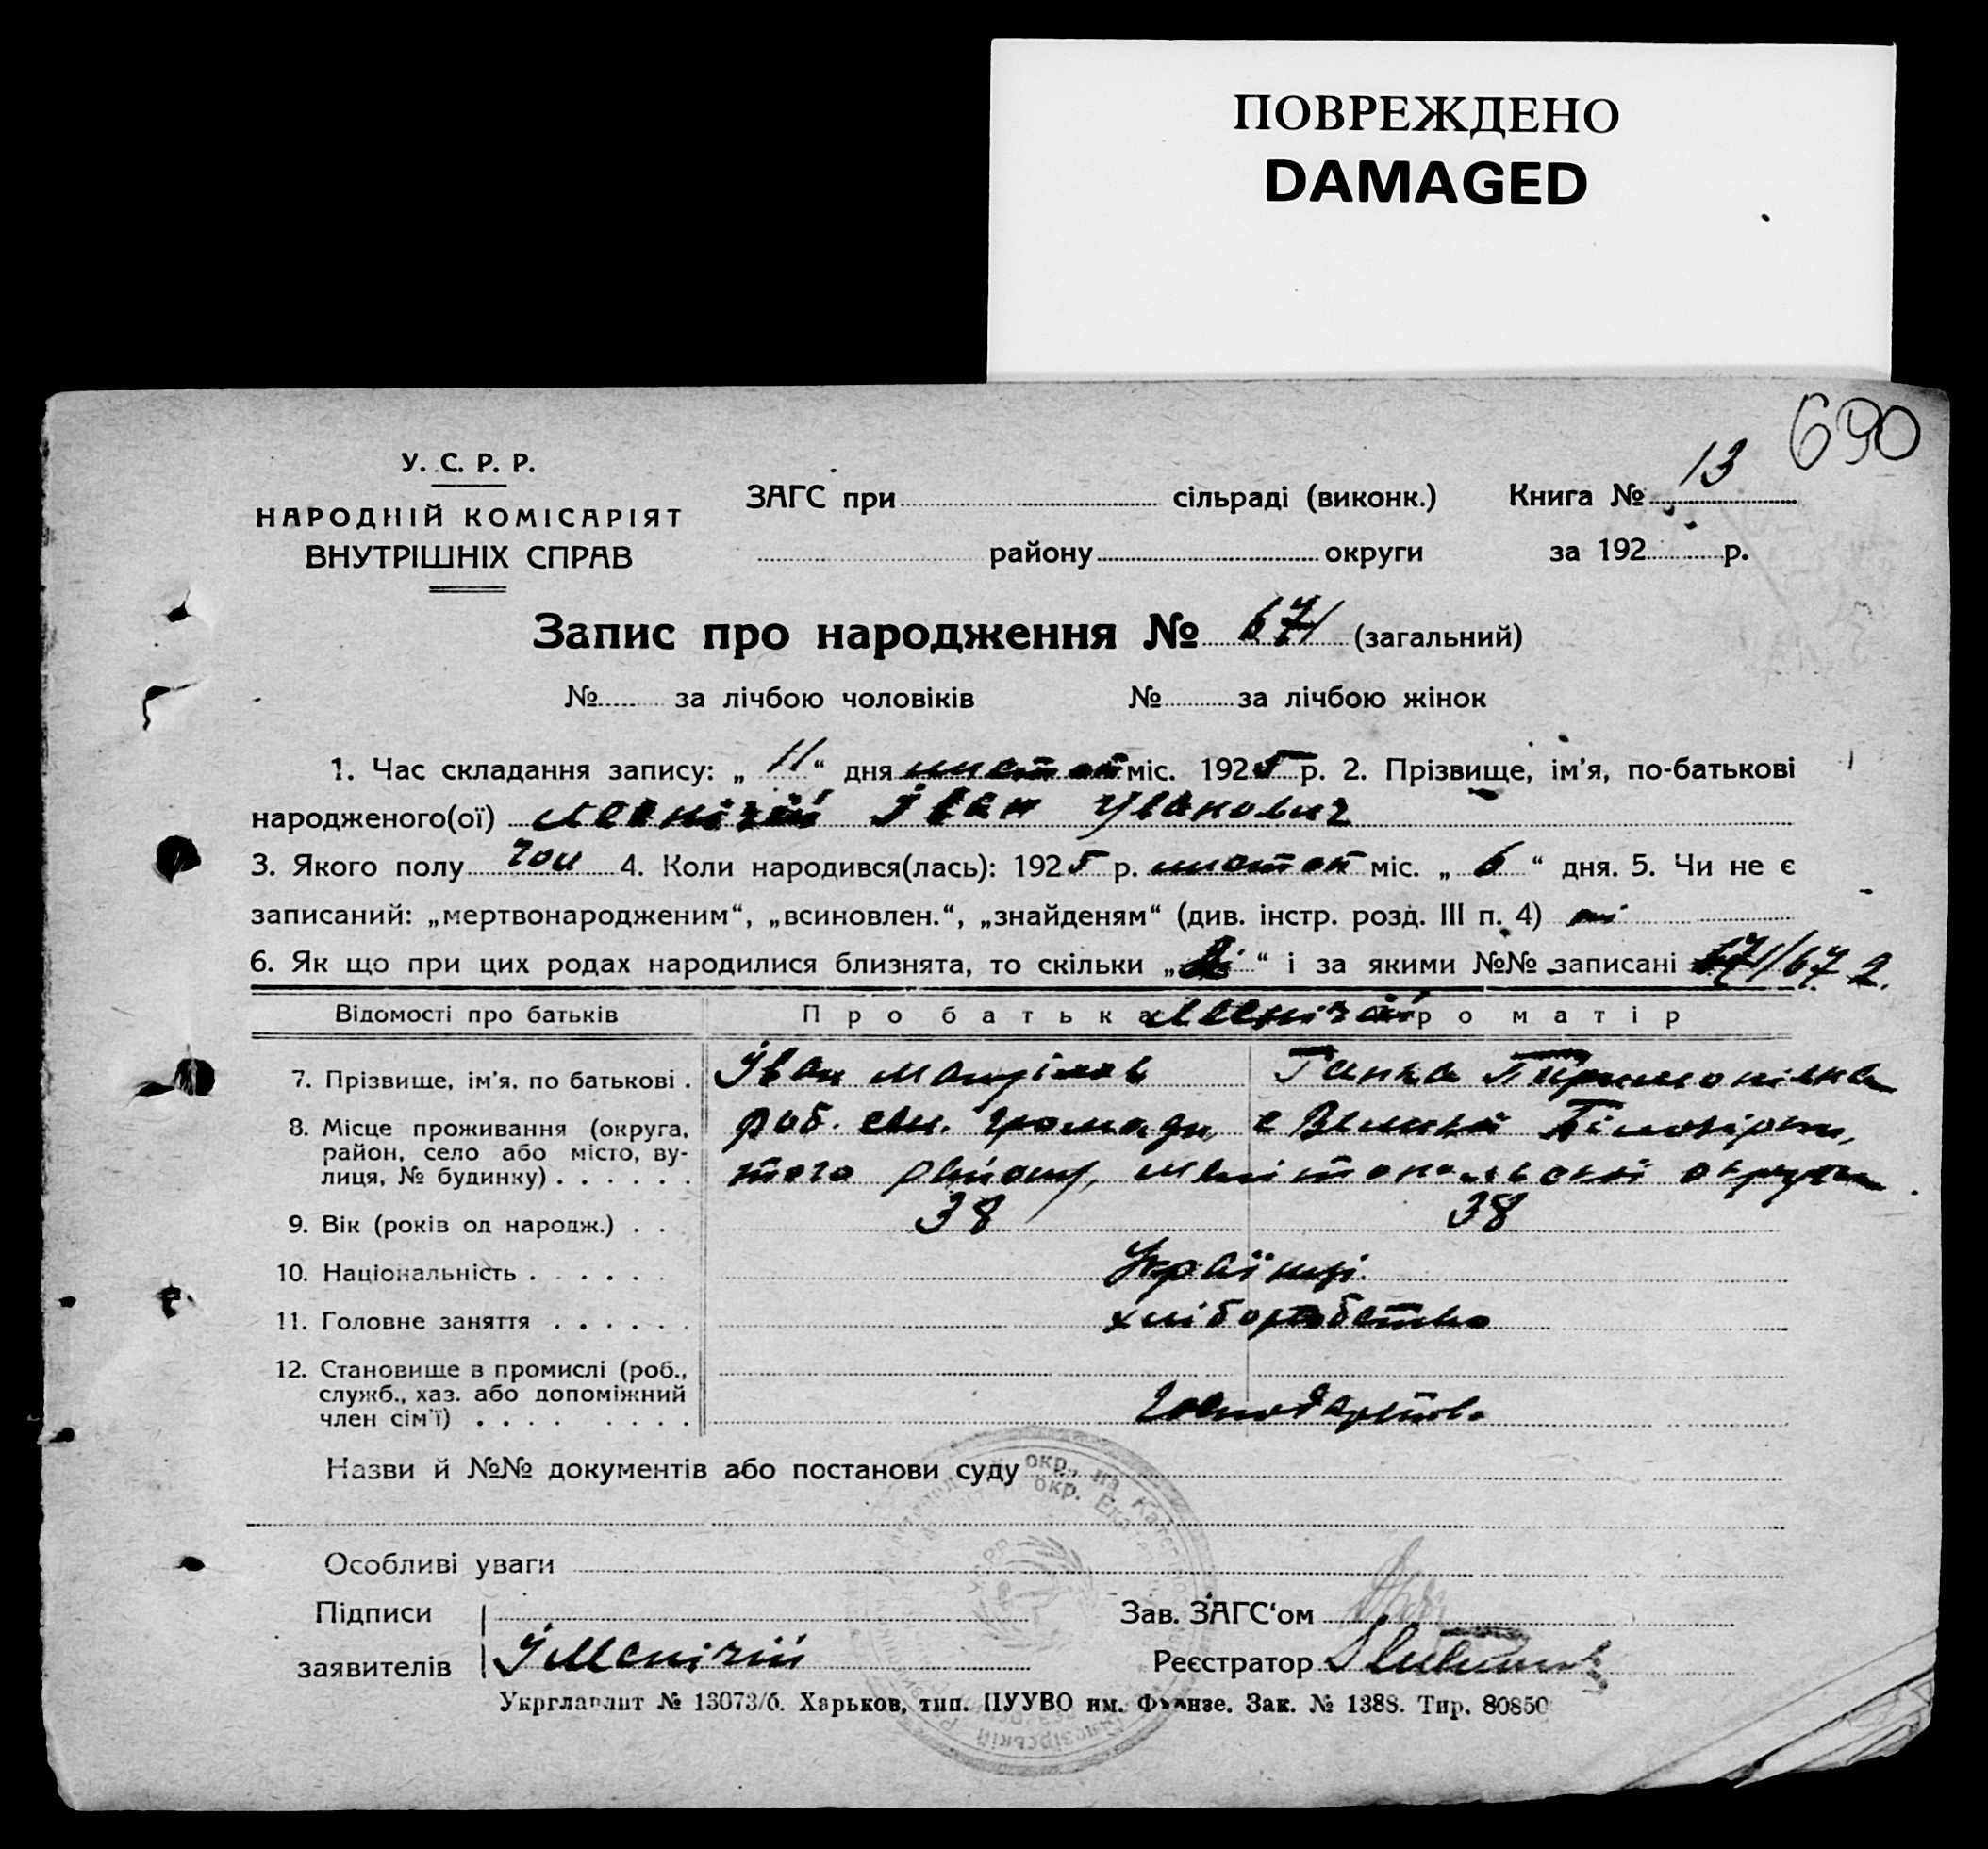 ПОВРЕЖДЕНО
DAMAGED
690
У. С. Р. Р.
НАРОДНІЙ КОМІСАРІЯТ
ВНУТРІШНІХ СПРАВ
ЗАГС при сільраді (виконк.) Книга № 13
району округи за 192 р.
Запис про народження № 671 (загальний)
№ за лічбою чоловіків № за лічбою жінок
1. Час складання запису: „ 11 “ дня листоп міс. 1925 р. 2. Прізвище, ім'я, по-батькові
народженого(ої) Іван Іванович
3. Якого полу чол 4. Коли народився(лась): 1925 р. листоп міс. „ 6 “ дня. 5. Чи не є
записаний: „мертвонародженим“, „всиновлен.“, „знайденям“ (див. інстр. розд. III п. 4) ні
6. Як що при цих родах народилися близнята, то скільки „ “ і за якими №№ записані 671/672.
Відомості про батьків Про батька Про матір
7. Прізвище, ім'я, по батькові . Іван Ганна
8. Місце проживання (округа, громади, с Великої Білозірки,
район, село або місто, вулиця, № будинку) . . . . . . того району, мелітопольської округи
9. Вік (років од народж.) . . 38 38
10. Національність . . . . . . Українці
11. Головне заняття . . . . . . хліборобство
12. Становище в промислі (роб.,
служб., хаз. або допоміжний
член сім'ї) . . . . . . . . .
Назви й №№ документів або постанови суду
Особливі уваги
Підписи Зав. ЗАГС‘ом
заявителів Реєстратор
Укрглавлит № 13073/б. Харьков, тип. ПУУВО им. Фрунзе. Зак. № 1388. Тир. 80850